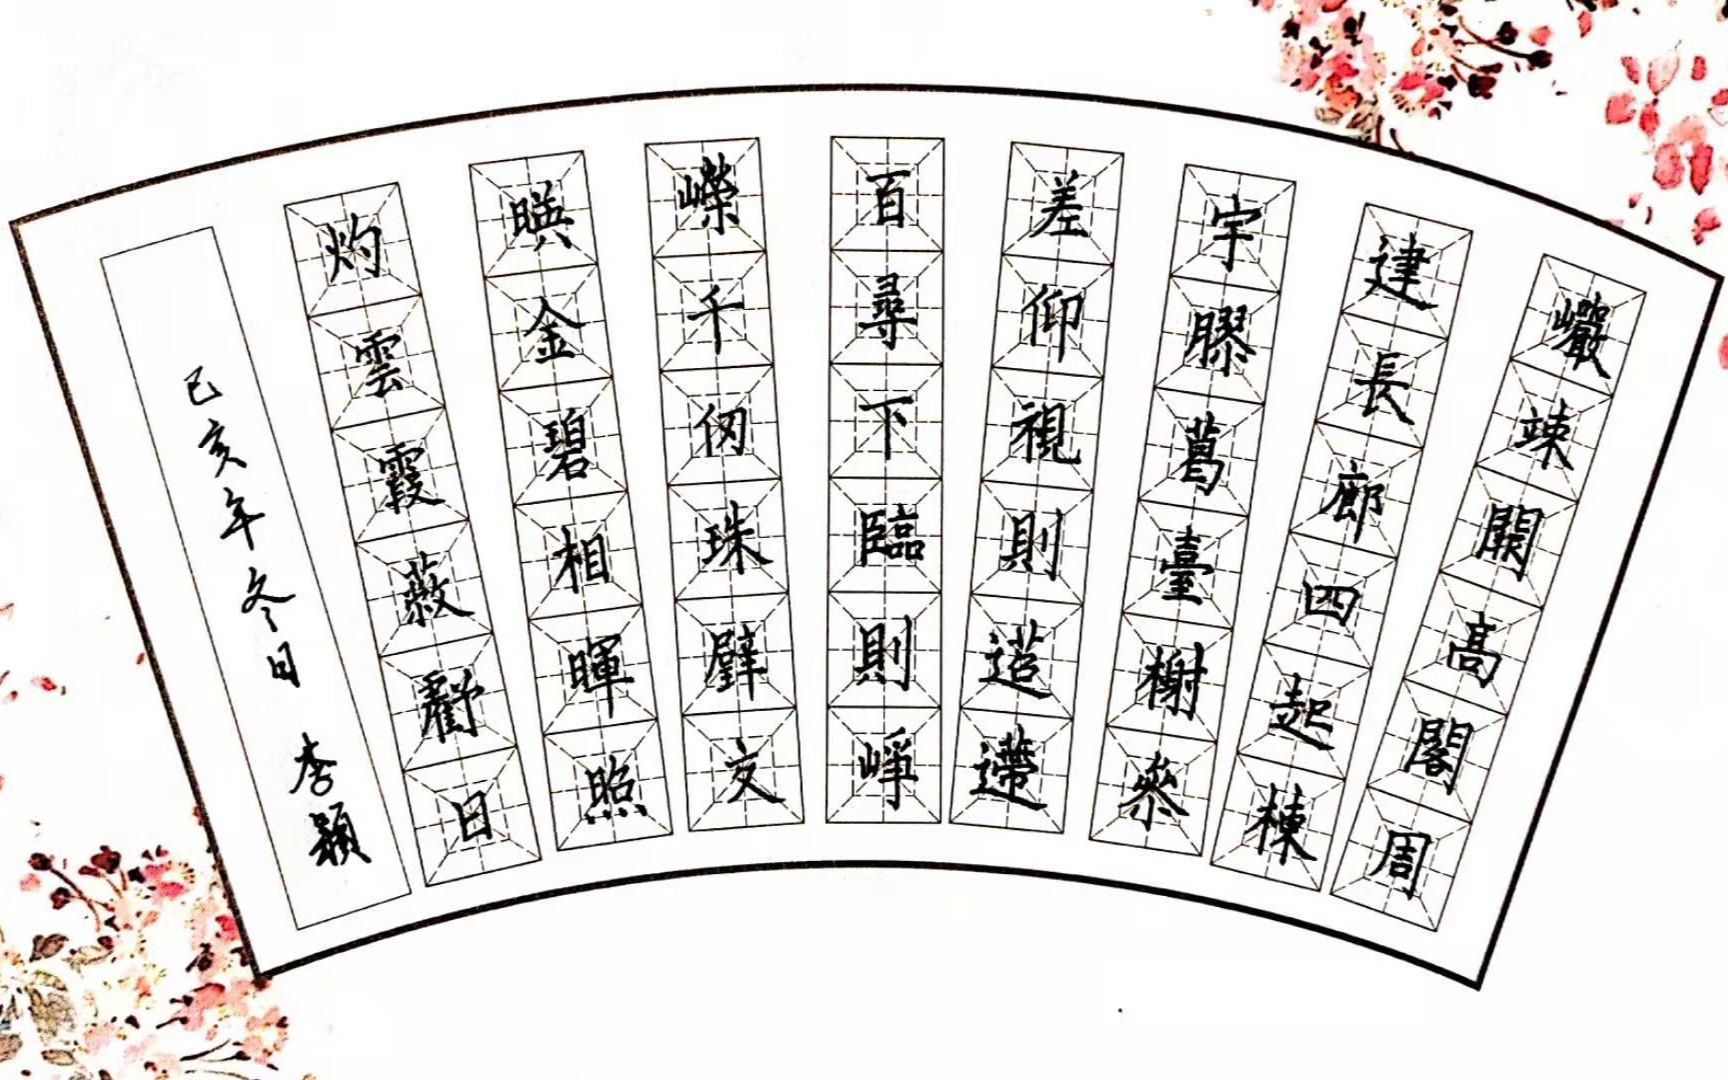 巖竦闕高閣周
建長廊四起棟
宇膠葛臺榭叅
差仰視則迢遰
百尋下臨則崢
嶸千仞珠璧交
暎金碧相暉照
灼雲霞蔽虧日
己亥年冬日 李穎